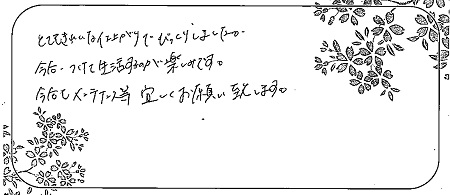 とてもきれいな仕上がりでびっくりしました。
今后、つけて生活するのが楽しみです。
今后もメンテナンス等 宜しくお願い致します。